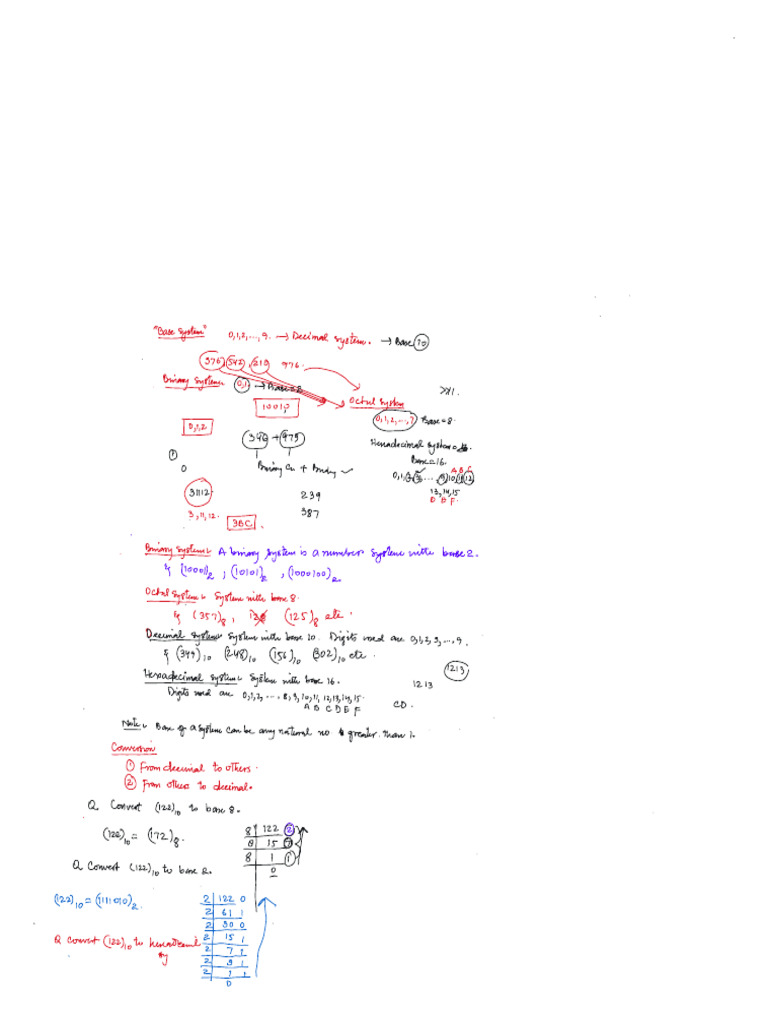 "Base System" 0,1,2,...,9. → Decimal System. → Base 10
376, 542, 219 976.
Binary System: 0,1 → Base=2
Octal System
>1.
1001,
0,1,2,...,7 Base=8.
0,1,2
346 + 979
Hexadecimal System
Base=16.
①
0
Binary Cu + Binary
A B C
0,1, ..., 9,10,11,12
31112
239
13,14,15
D E F.
3,11,12.
387
3BC.
Binary System: A binary system is a number system with base 2.
(1000)₂, (10101)₂, (1000100)₂
Octal System: System with base 8.
(357)₈, (125)₈ etc.
Decimal System: System with base 10. Digits used are 0,1,2,3,...,9.
(349)₁₀ (248)₁₀ (156)₁₀ (302)₁₀ etc.
1213
Hexadecimal System: System with base 16.
1213
Digits used are 0,1,2,...,8,9,10,11,12,13,14,15.
A B C D E F
CD.
Note: Base of a system can be any natural no. greater than 1.
Conversion
① From decimal to others.
② From other to decimal.
Q Convert (122)₁₀ to base 8.
(122)₁₀ = (172)₈.
8 | 122 2
8 | 15 7
8 | 1 1
0
Q Convert (122)₁₀ to base 2.
(122)₁₀ = (1111010)₂.
2 | 122 0
2 | 61 1
2 | 30 0
2 | 15 1
2 | 7 1
2 | 3 1
2 | 1 1
0
Q Convert (122)₁₀ to hexadecimal
sy